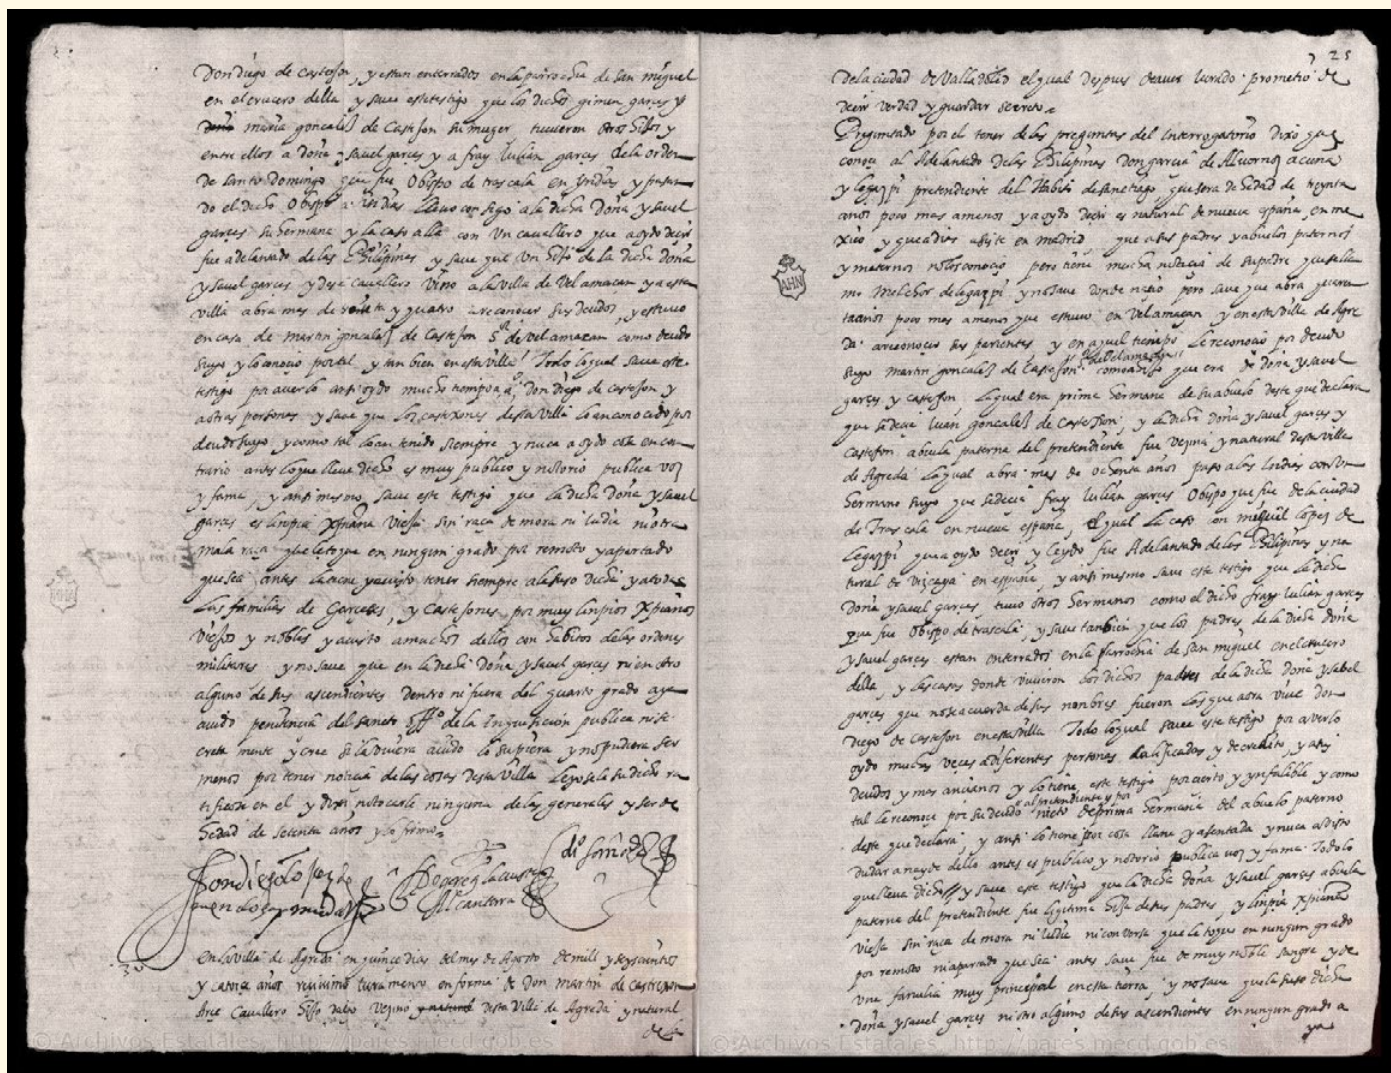 Don diego de castejon, y estan enterrados en la parrochia de san miguel
en el crucero della y save este testigo que los dichos gimen garces y
doña maria goncalez de Castejon su muger tuvieron otros hijos y
entre ellos a doña ysavel garces y a fray Iulian garces de la orden
de santo Domingo que fue Obispo de trascala en yndias y
do el dicho Obispo a indias llevo consigo a la dicha Doña ysavel
garçes su hermana y la caso alla con Un cavallero que a oydo deçir
fue adelantado de las Philipinas y save que Un hijo de la dicha doña
ysavel garces y dese cavallero Vino a la Villa de Velamaçan y a esta
villa abra mas de y quatro a reconocer sus deudos, y estuvo
en casa de martin goncalez de Castejon Sr de velamazan como deudo
suyo y lo conoçio por tal, y tan bien en esta villa Todo lo qual save este
testigo por averlo ansi oydo mucho tiempo a, a don diego de castejon y
a otras personas y save que los castexones desta Villa lo an conocido por
deudo suyo, y como tal lo an tenido siempre y nunca a oydo cosa en con
trario antes lo que lleva dicho es muy publico y notorio publica voz
y fama, y ansi mesmo save este testigo que la dicha doña ysavel
garces es linpia xpiana vieja sin raça de mora ni Iudia ni otra
mala raça que le toque en ningun grado por remoto y apartado
que sea antes y a visto tener siempre a la suso dicha y a todas
las familias de Garceses, y Castejones, por muy linpios xpianos
viejos y nobles y a visto a muchos dellos con habitos de las ordenes
militares y no save que en la dicha doña ysavel garçes ni en otro
alguno de sus ascendientes dentro ni fuera del quarto grado aya
avido penitencia del sancto offo de la Inquisicion publica ni se
creta mente y cree si la uviera avido lo supiera y no pudiera ser
menos por tener noticia de las cosas desta Villa leyosele su dicho ra
tificose en el y dixo no tocarle ninguna de las generales y ser de
hedad de setenta años y lo firmo
Alcantara
En la villa de Agreda en quinçe dias del mes de Agosto de mill y seyscientos
y catorce años reçivimos juramento en forma de Don martin de castejon
Cavallero hijo dalgo Veçino y natural desta Villa de Agreda y natural
de la
25
de la ciudad de Valladolid el qual despues de aver Iurado prometio de
decir verdad y guardar secreto
Preguntado por el tenor de las preguntas del Interrogatorio dixo que
conoçe al Adelantado de las Philipinas don garcia de Alvornoz acuna
y legazpi pretendiente del Habito de sanctiago, que sera de hedad de treynta
años poco mas a menos y a oydo decir es natural de nueva españa, en me
xico y que a dias asiste en madrid que a sus padres y abuelos paternos
y maternos no los conoçio pero tiene mucha noticia de su padre que se lla
mo Melchor de legazpi y no save donde naçio pero save que abra
ta años poco mas a menos que estuvo en Velamaçan y en esta Villa de Agre
da a reconocer sus parientes y en aquel tiempo le reconoçio por deudo
suyo martin goncalez de Castejon como a hijo que era de doña ysavel
garçes y castejon la qual era prima hermana de su abuelo deste que declara
que se decia Iuan gonçalez de Castejon, y la dicha doña ysavel garçes y
castejon abuela paterna del pretendiente fue veçina y natural desta villa
de Agreda la qual abra mas de ochenta años paso a las indias con Un
hermano suyo que se decia fray Iulian garces Obispo que fue de la ciudad
de Trascala en nueva españa, el qual la caso con miguel lopez de
Legazpi que a oydo decir y leydo fue Adelantado de las Philipinas y na
tural de vizcaya en españa, y ansi mesmo save este testigo que la dicha
Doña ysavel garces tuvo otros hermanos como el dicho fray Iulian garces
que fue Obispo de trascala, y save tanbien que los padres de la dicha doña
ysavel garçes estan enterrados en la parrochia de san miguel en el crucero
della, y las casas donde vivieron los dichos padres de la dicha doña ysabel
garçes que no se acuerda de sus nonbres fueron los que aora vive don
Diego de Castejon en esta Villa Todo lo qual save este testigo por averlo
oydo muchas veçes a diferentes personas calificadas, y de credito, y a sus
deudos y mas ançianos y lo tiene este testigo por cierto y ynfalible y como
tal le reconoçe por su deudo al pretendiente y por nieto de prima hermana del abuelo paterno
deste que declara, y ansi lo tiene por cosa llana y asentada y nunca a visto
dudar a nayde dello antes es publico y notorio publica voz y fama Todo lo
que lleva dicho y save este testigo que la dicha doña ysavel garçes abuela
paterna del pretendiente fue ligitima hija de sus padres, y linpia xpiana
vieja sin raça de mora ni Iudia ni conversa que le toque en ningun grado
por remoto ni apartado que sea antes save fue de muy noble sangre y de
una familia muy prinçipal en esta tierra, y no save que la suso dicha
Doña ysavel garçes ni otro alguno de sus ascendientes en ningun grado a
ya
AHN
© Archivos Estatales, http://pares.mecd.gob.es
© Archivos Estatales, http://pares.mecd.gob.es